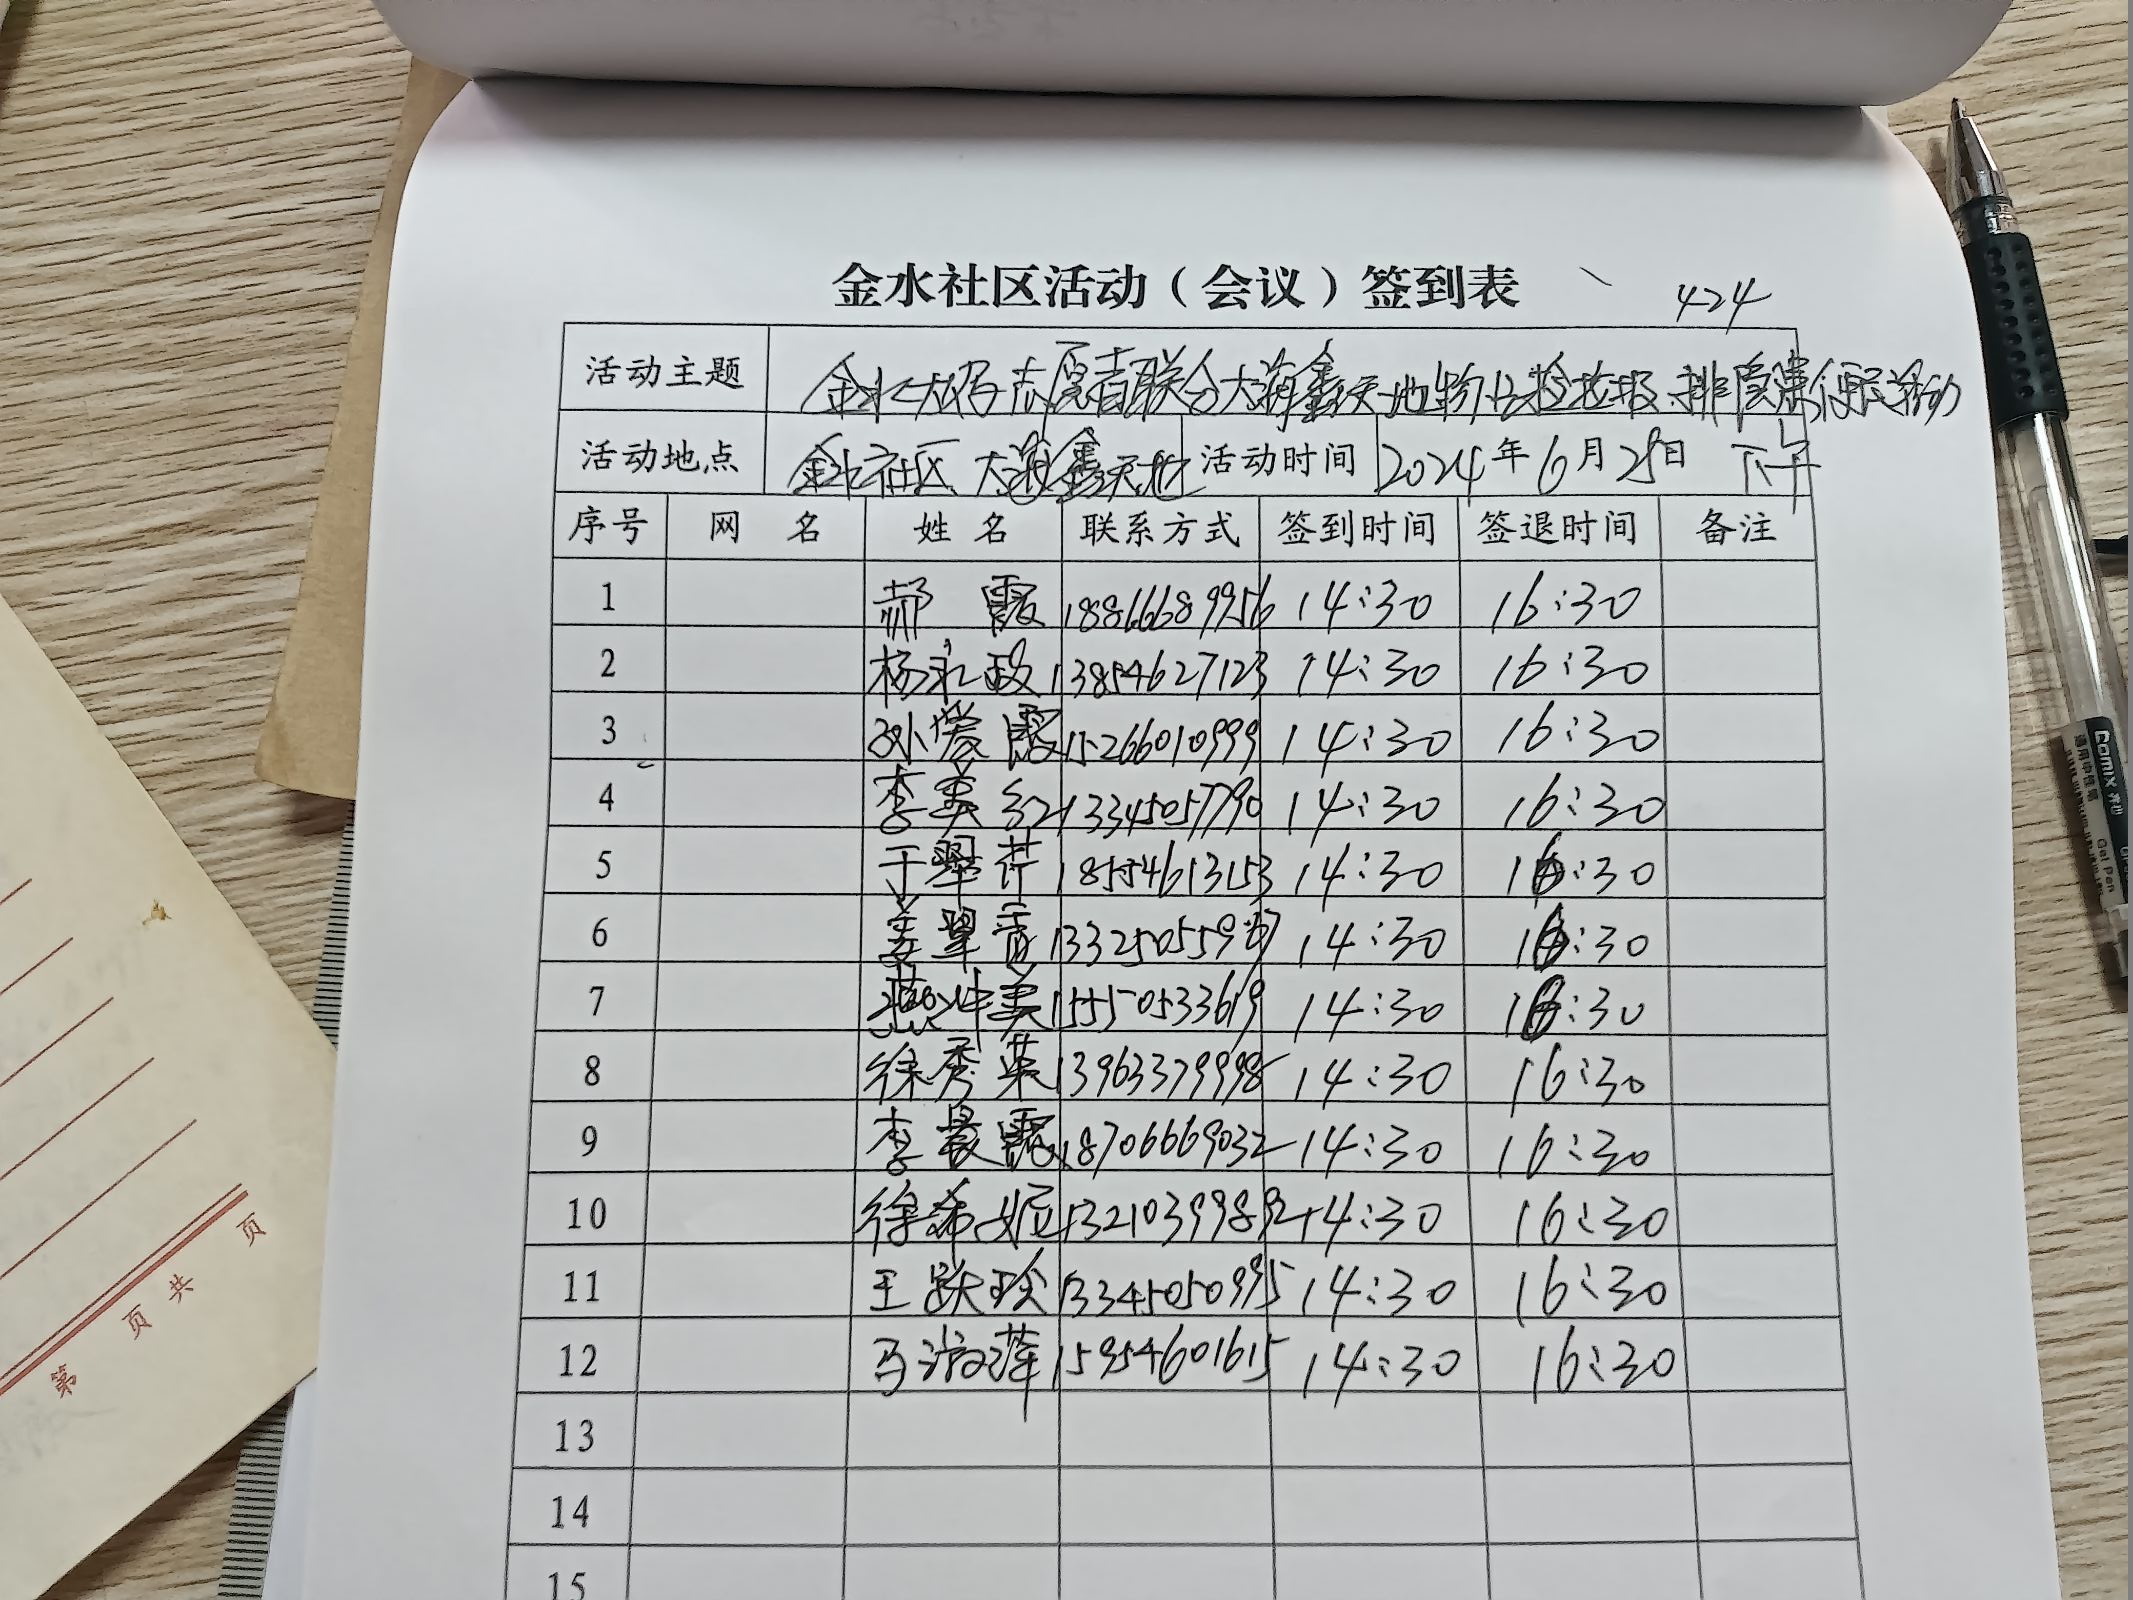 金水社区活动（会议）签到表
424
活动主题 金水大妈志愿者联合大海鑫天地物业捡垃圾、排隐患便民活动
活动地点 金水社区、大海鑫天地 活动时间 2024年6月25日 下午
序号 网 名 姓 名 联系方式 签到时间 签退时间 备注
1 郝 霞 18866689956 14:30 16:30
2 杨永政 13854627123 14:30 16:30
3 孙爱霞 15266010999 14:30 16:30
4 李美红 13345057790 14:30 16:30
5 于翠芹 18554613153 14:30 16:30
6 姜翠香 14:30 16:30
7 燕冲美 15550533619 14:30 16:30
8 徐秀英 13963379998 14:30 16:30
9 李晨霞 18706669032 14:30 16:30
10 徐希 14:30 16:30
11 王跃玲 13345050995 14:30 16:30
12 马淑萍 15954601615 14:30 16:30
13
14
15
第 页 共 页
Comix 齐心
通用中性笔
Gel Pen